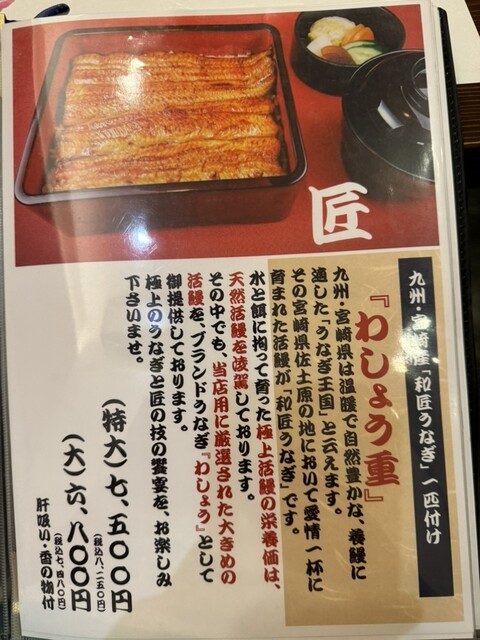 匠
九州・宮崎産「和匠うなぎ」一匹付け
『わしょう重』
九州・宮崎県は温暖で自然豊かな、養鰻に
適した「うなぎ王国」と云えます。
その宮崎県佐土原の地において愛情一杯に
育まれた活鰻が「和匠うなぎ」です。
水と餌に拘って育った極上活鰻の栄養価は、
天然活鰻を凌駕しております。
その中でも、当店用に厳選された大きめの
活鰻を、ブランドうなぎ『わしょう』として
御提供しております。
極上のうなぎと匠の技の饗宴を、お楽しみ
下さいませ。
(特大)七、五〇〇円
(税込八、二五〇円)
(大)六、八〇〇円
(税込七、四八〇円)
肝吸い・香の物付